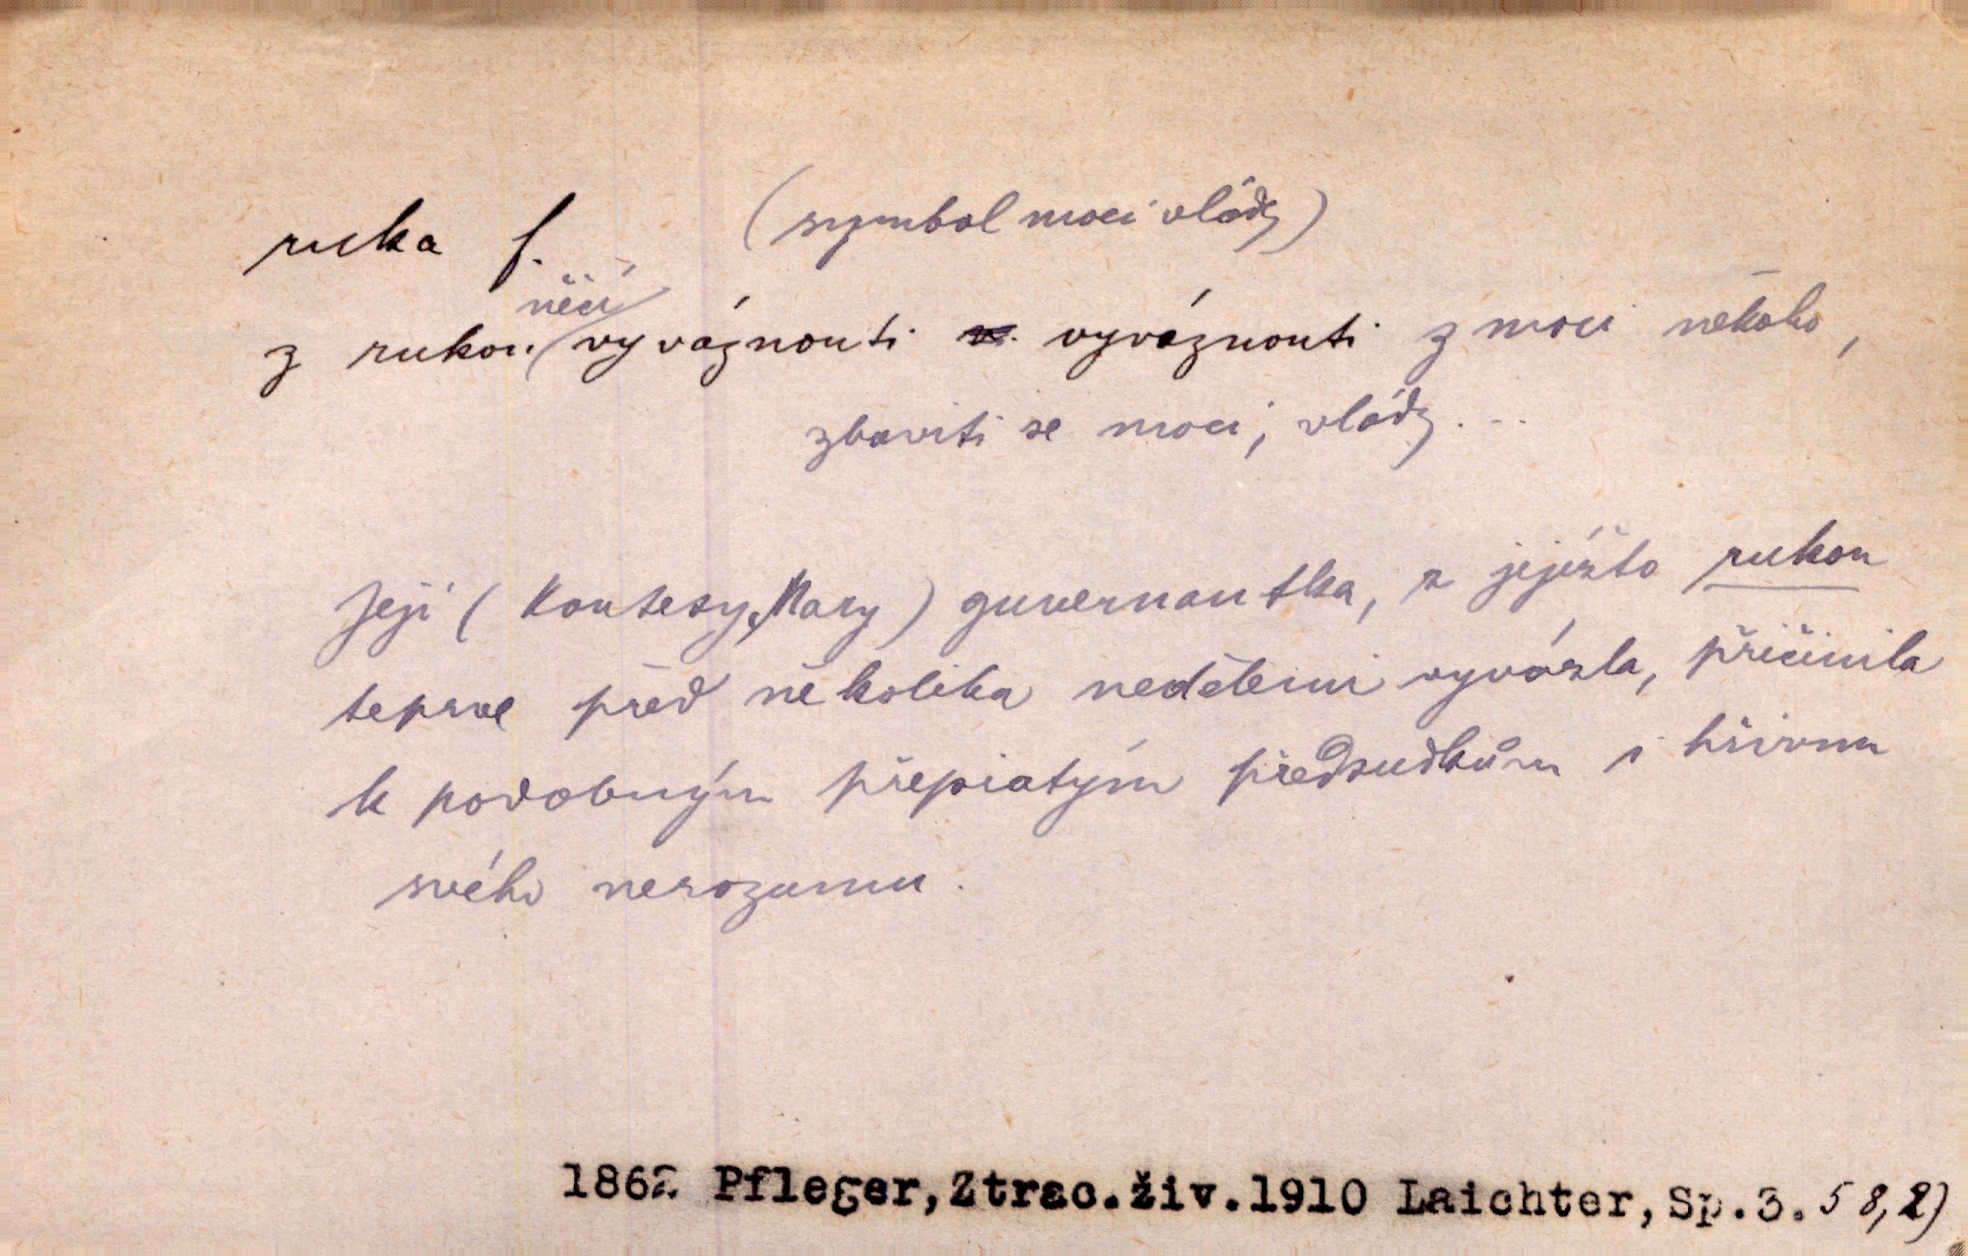 ruka f. (symbol moci vlády)
něčí
z rukou vyváznouti vyváznouti z moci někoho,
zbaviti se moci, vlády...
Její (Kontesy Mary) guvernantka, z jejížto rukou
teprve před několika nedělemi vyvázla, přičinila
k podobným přepiatým předsudkům i hřivnu
svého nerozumu.
1862 Pfleger, Ztrac.živ.1910 Laichter, Sp.3. 58,2)